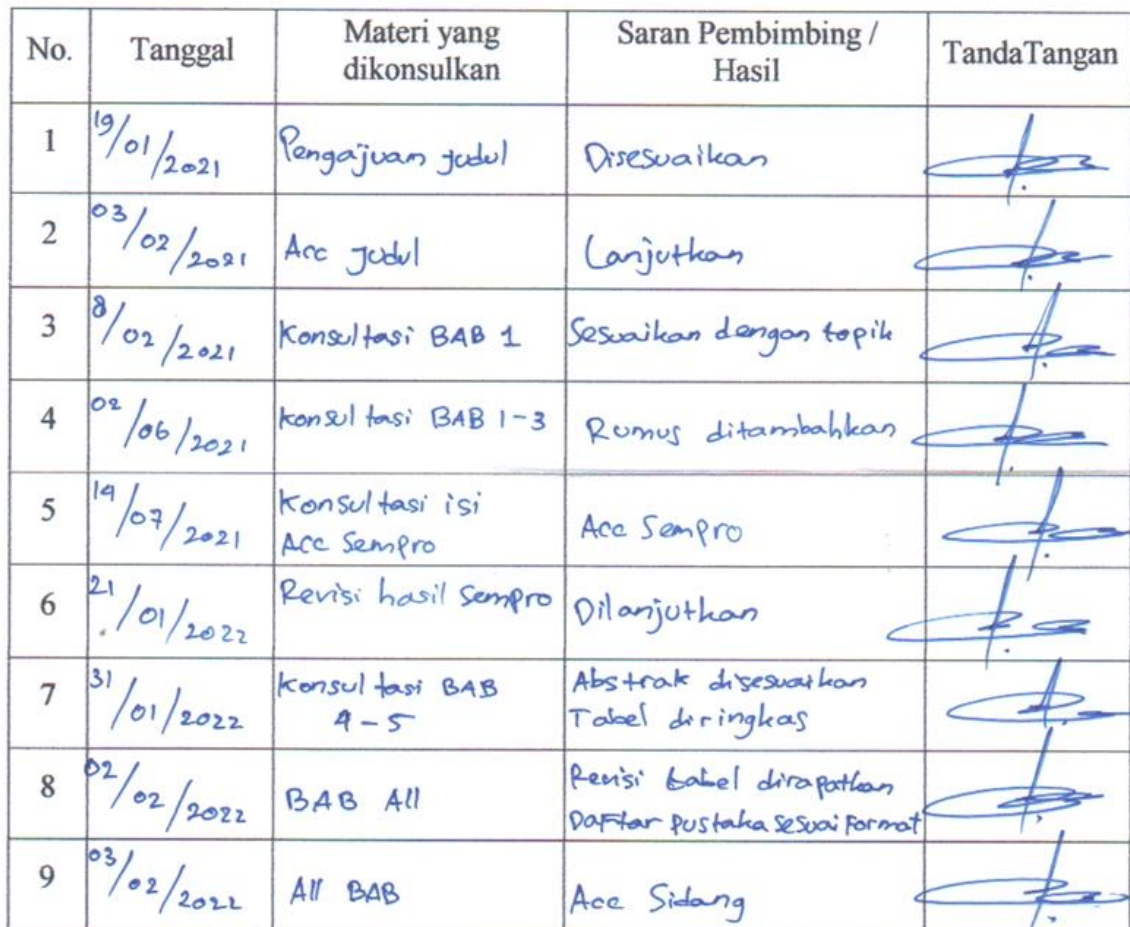 No. Tanggal Materi yang dikonsulkan Saran Pembimbing / Hasil TandaTangan
1 19/01/2021 Pengajuan judul Disesuaikan
2 03/02/2021 Acc judul Lanjutkan
3 8/02/2021 Konsultasi BAB 1 Sesuaikan dengan topik
4 02/06/2021 konsultasi BAB 1-3 Rumus ditambahkan
5 14/07/2021 Konsultasi isi Acc Sempro
Acc Sempro
6 21/01/2022 Revisi hasil sempro Dilanjutkan
7 31/01/2022 Konsultasi BAB Abstrak disesuaikan
4-5 Tabel diringkas
8 02/02/2022 BAB All Revisi tabel dirapatkan
Daftar pustaka sesuai format
9 03/02/2022 All BAB Acc Sidang